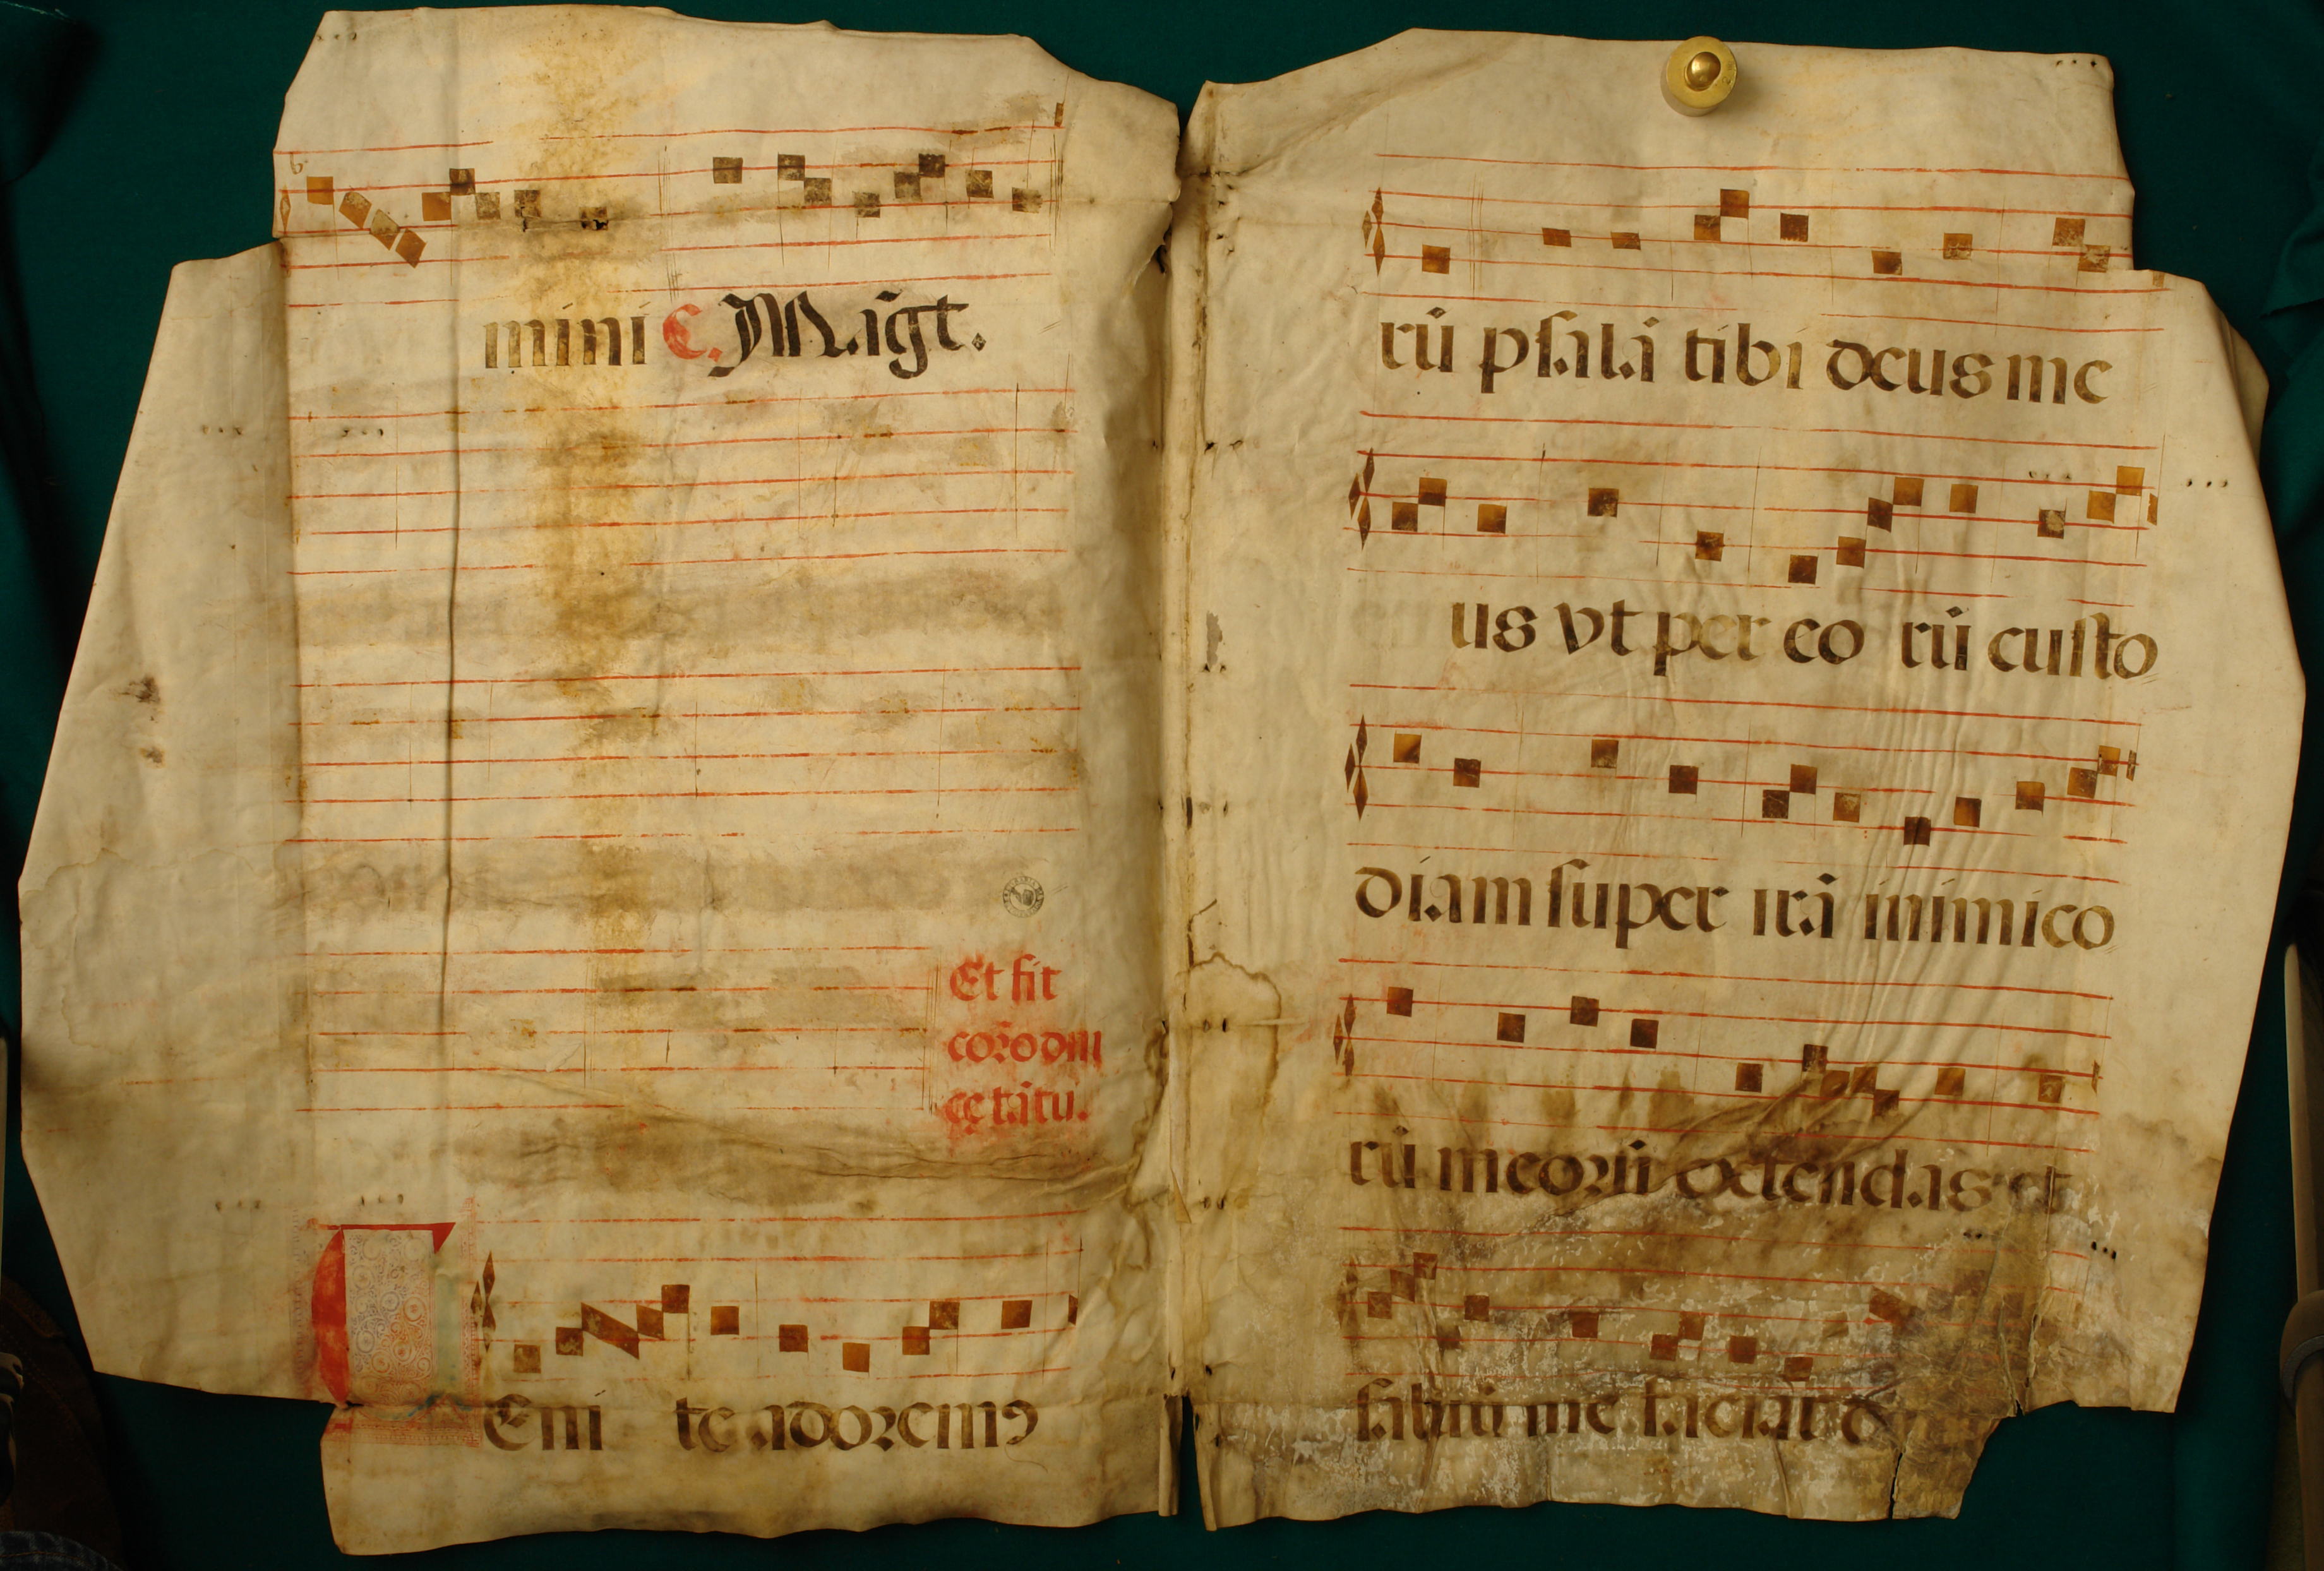 mini C. Magt̃.
Et fit
com̃o dñi
Eni te adoremꝯ
rũ psalã tibi deus me
us vt per eo rũ custo
diam super irã inimico
rũ meorũ extendas et
saluũ me faciat d